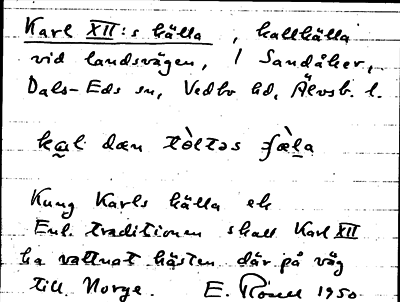 Karl XII:s källa, kallkälla
vid landsvägen, i Sandåker,
Dals-Eds sn, Vedbo hd, Älvsb. l.
kal dæn tòltəs ɕæ̀la
Kung Karls källa el.
Enl. traditionen skall Karl XII
ha vattnat hästen där på väg
till Norge. E. 1950